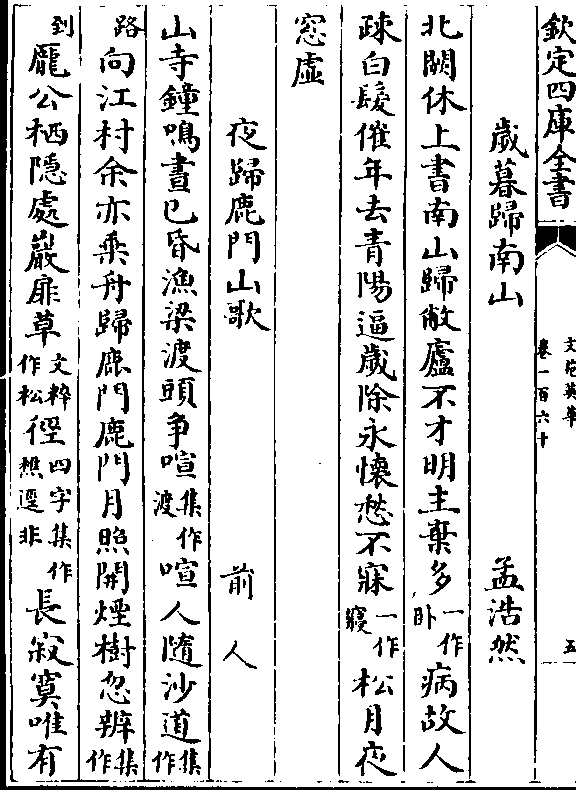 欽定四庫全書
文苑英華
卷一百六十
五
歲暮歸南山 孟浩然
北闕休上書南山歸敝廬不才明主棄多一作卧病故人
疎白髮催年去青陽逼歲除永懷愁不寐一作寢松月夜
窓虛
夜歸鹿門山歌 前人
山寺鐘鳴晝已昏漁梁渡頭爭喧集作渡喧人隨沙道集作
路向江村余亦乘舟歸鹿門鹿門月照開煙樹忽辨集作
到龎公栖隱處巖扉草文粹作松徑四字集作樵逕非長寂寞唯有